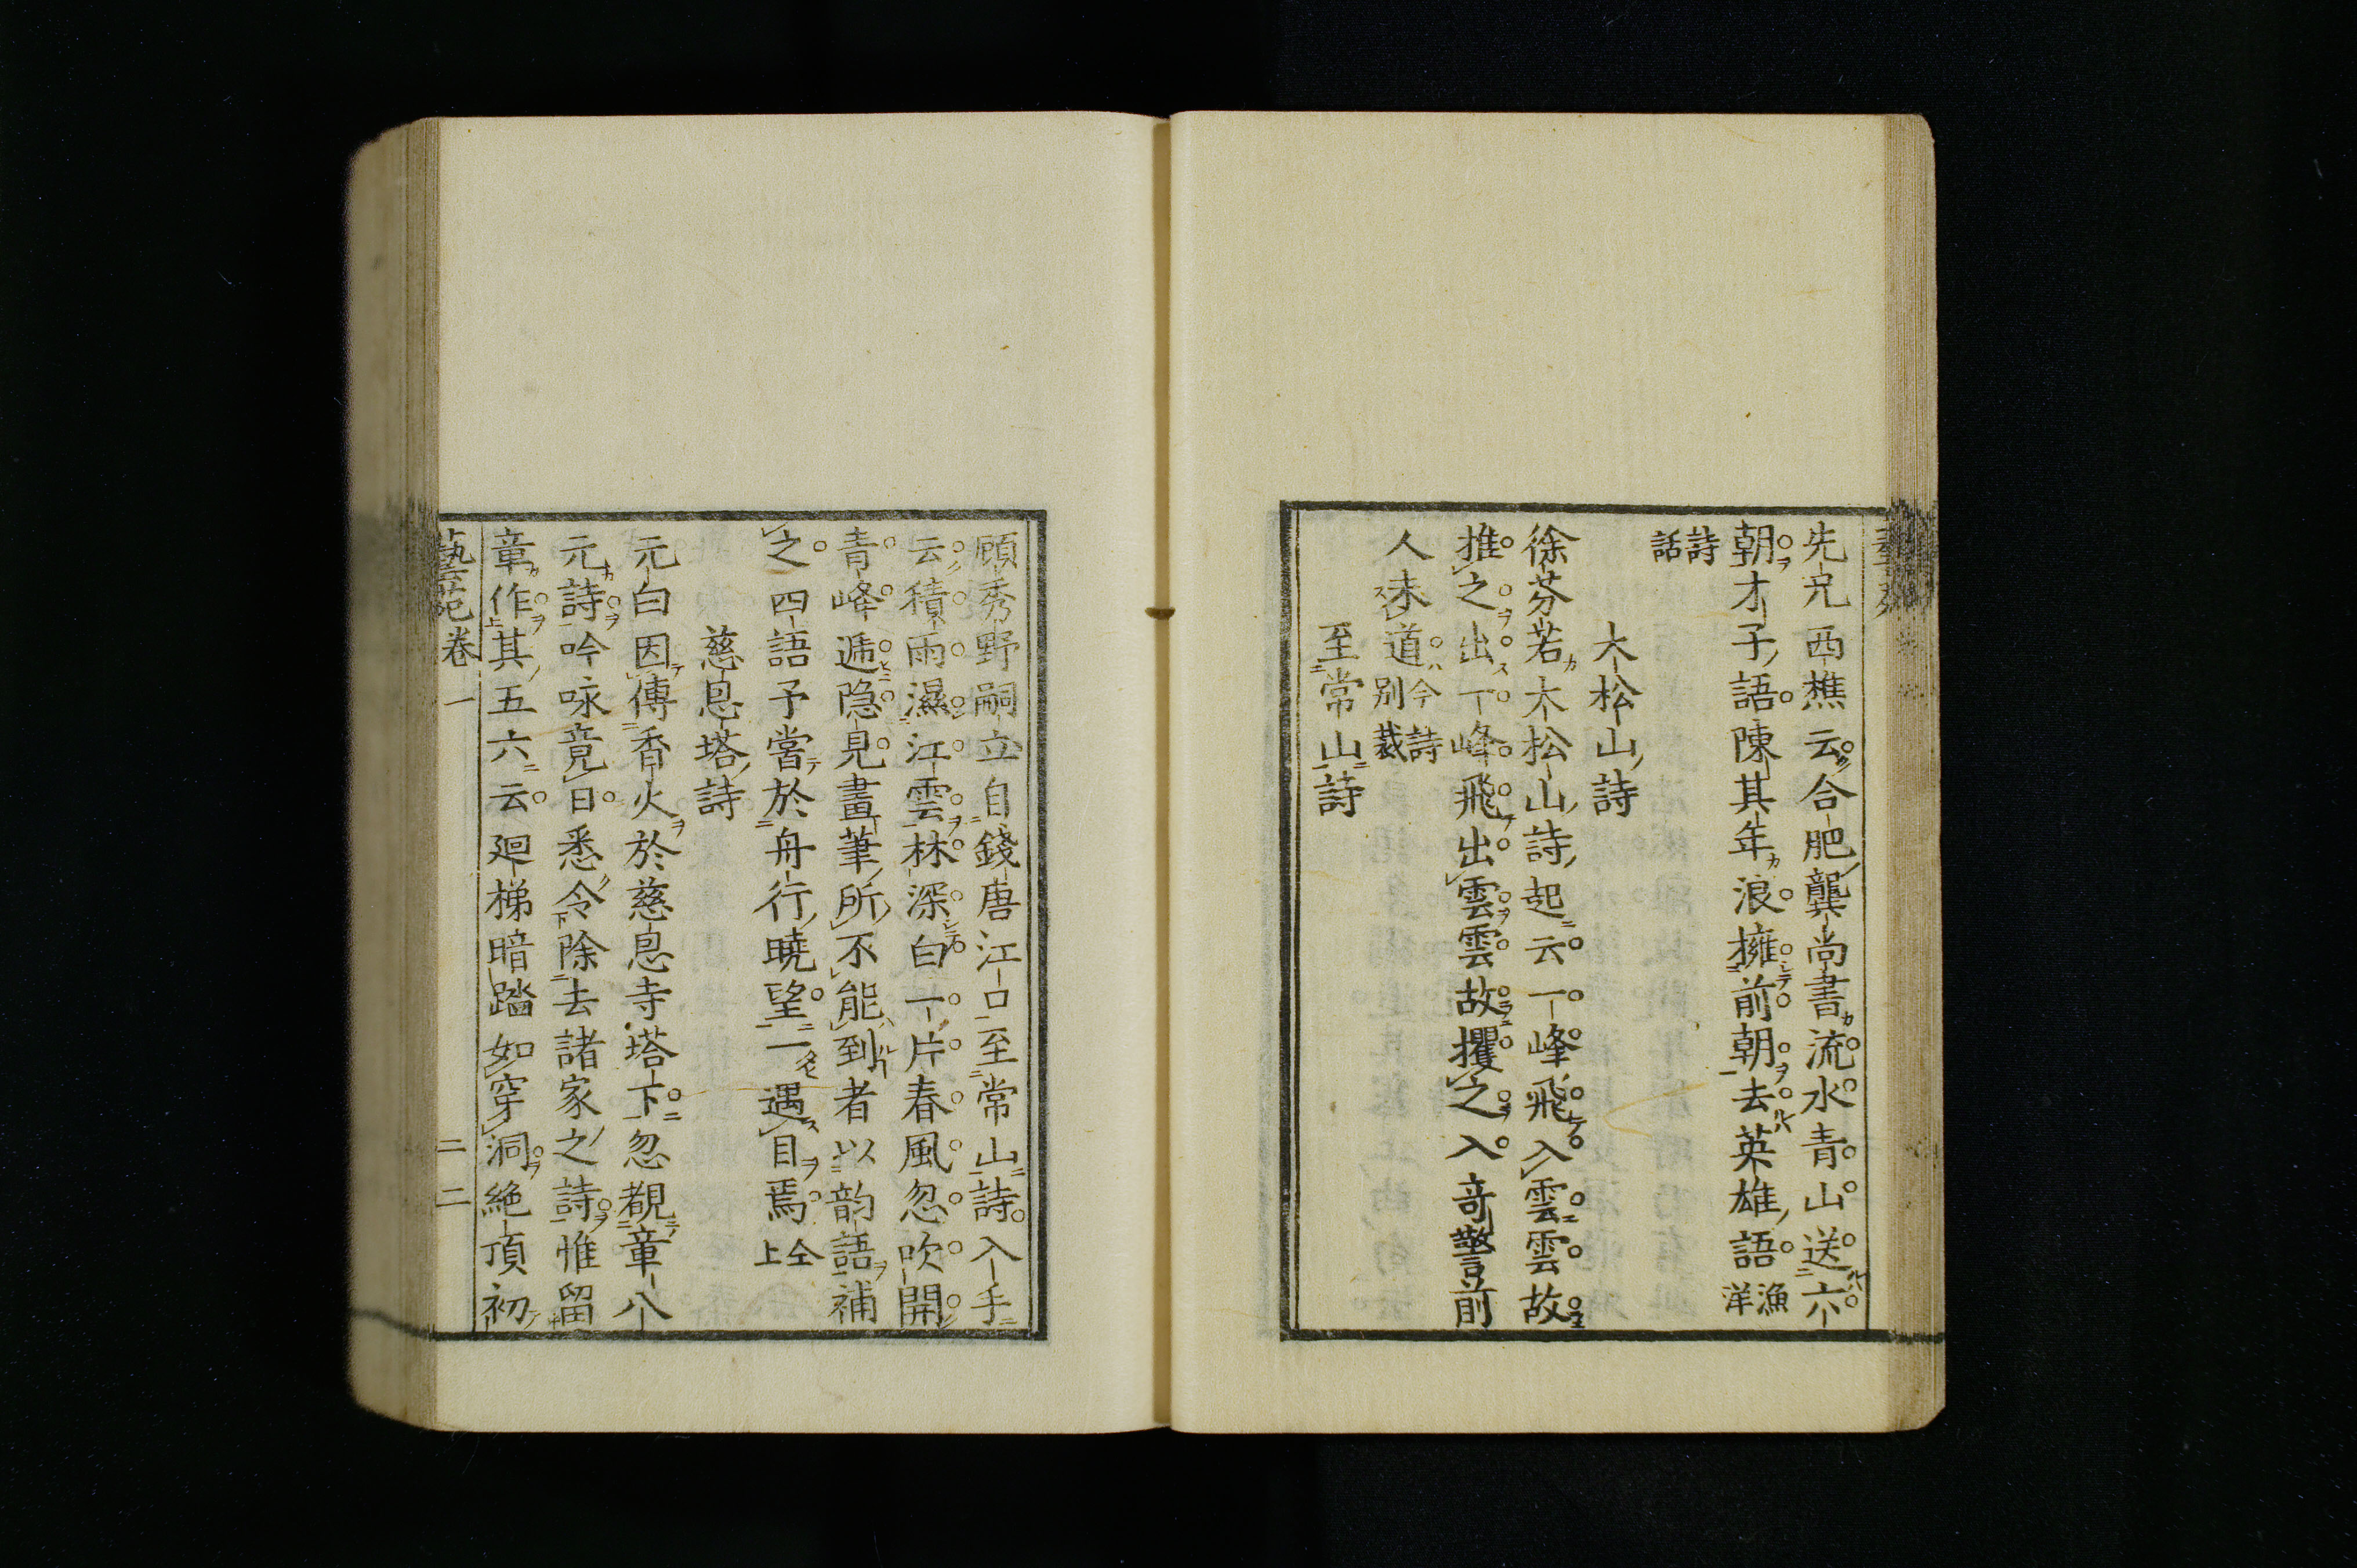 先兄西樵云合肥龔尚書流水青山送六
朝才子語陳其年浪擁前朝去英雄語漁洋
詩話
大松山詩
徐芬若大松山詩起云一峰飛入雲雲故
推之出一峰飛出雲雲故攫之入奇警前
人未道今詩別裁
至常山詩
顧秀野嗣立自錢唐江口至常山詩入手
云積雨濕江雲林深白一片春風忽吹開
青峰遞隐見畫筆所不能到者以韵語補
之四語予嘗於舟行曉望一遇目焉仝上
慈恩塔詩
元白因傳香火於慈恩寺塔下忽覩章八
元詩吟咏竟日悉令除去諸家之詩惟留
章作其五六云廻梯暗踏如穿洞絶頂初
藝苑卷一 二二